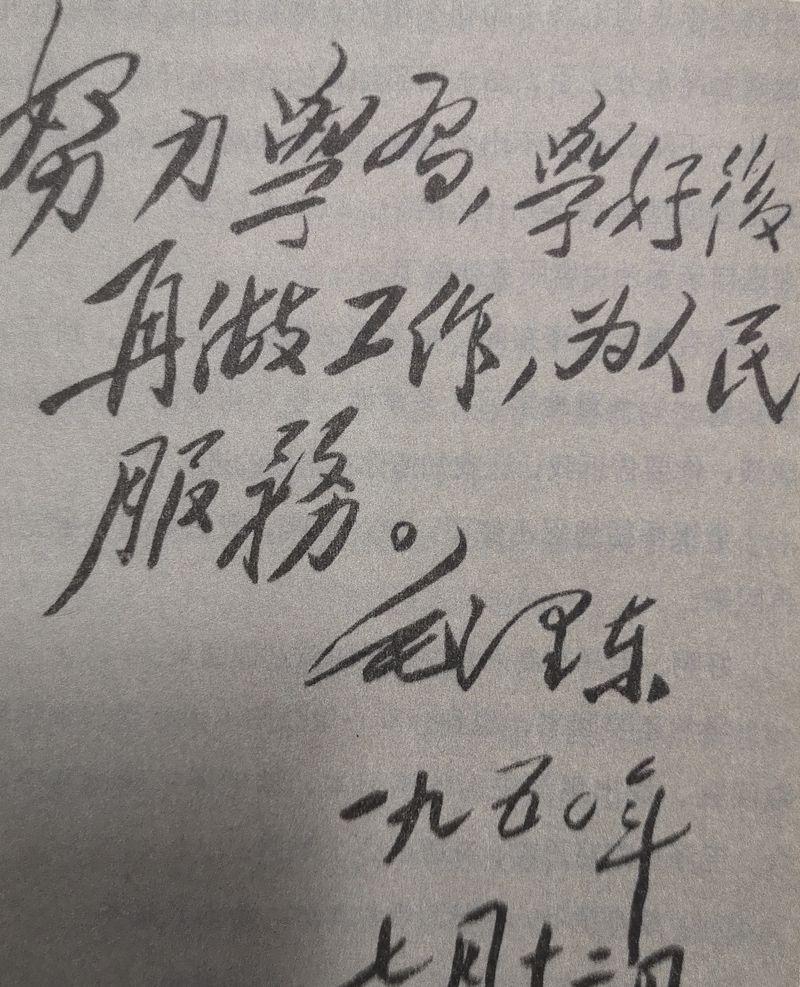 努力學習,學好後
再做工作,为人民
服務。
毛泽东
一九五〇年
七月十二日